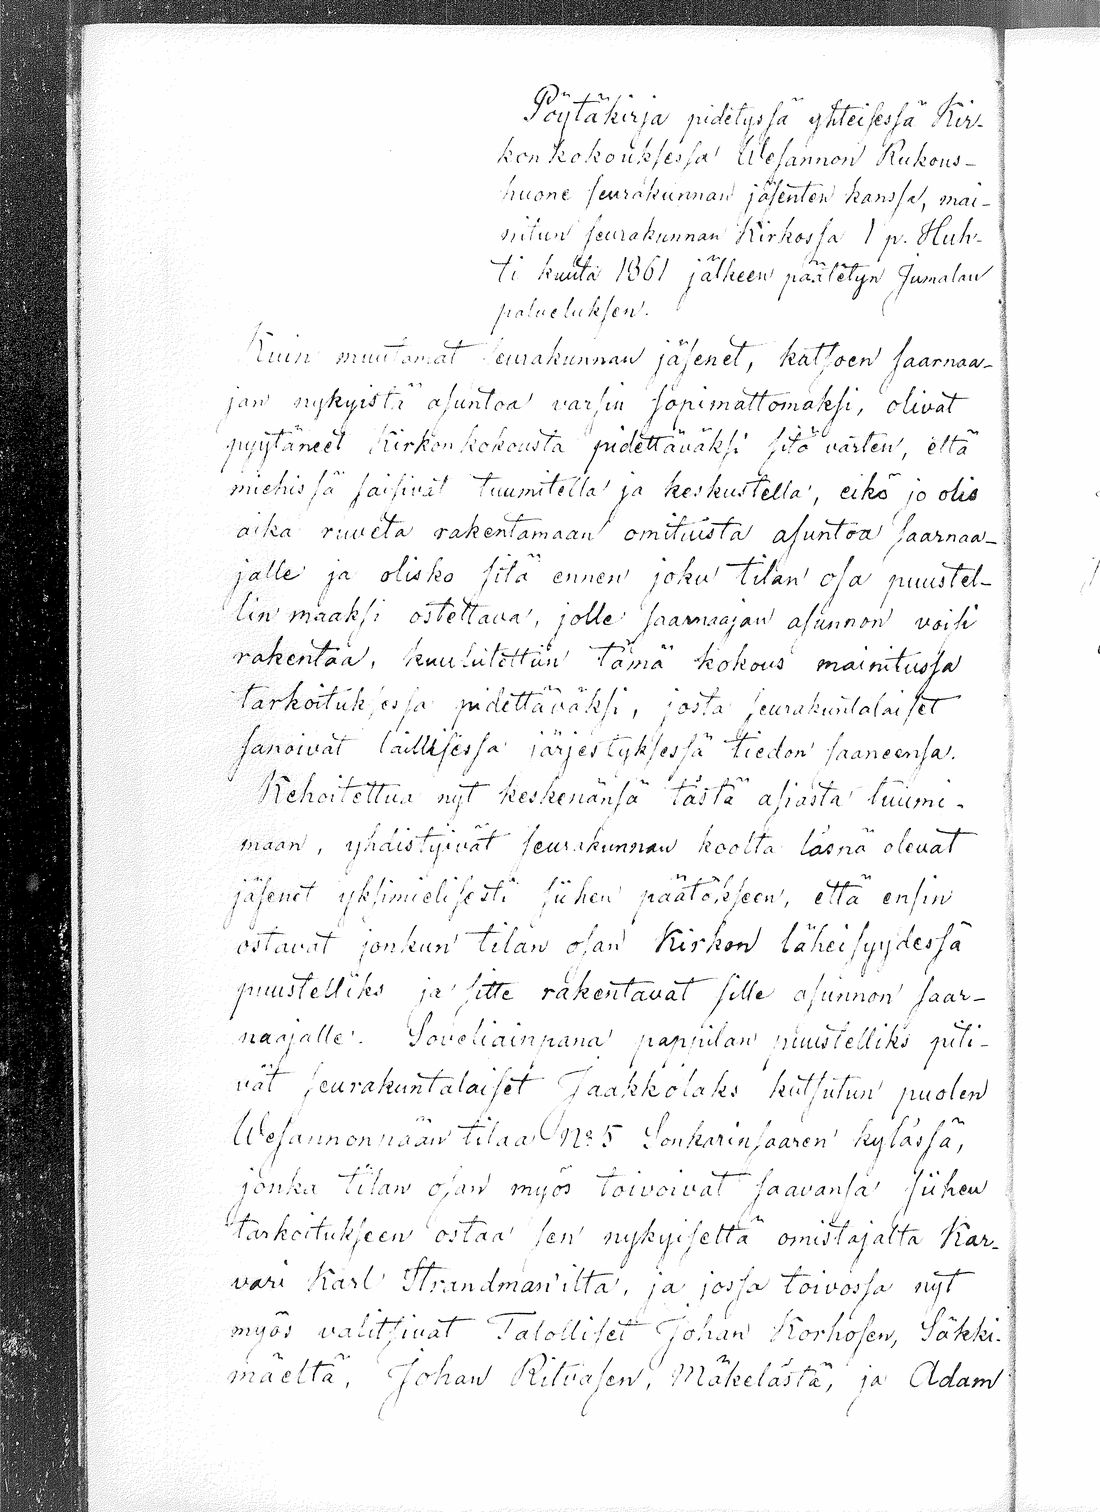 Pöytäkirja pidetyssä yhteisessä Kir-
konkokouksessa Wesannon Rukous-
huone seurakunnan jäsenten kanssa, mai-
nitun seurakunnan Kirkossa 1 p. Huh-
ti kuuta 1861 jälkeen päätetyn Jumalan
palveluksen.
Kuin muutamat seurakunnan jäsenet, katsoen saarnaa-
jan nykyistä asuntoa varsin sopimattomaksi, olivat
pyytäneet Kirkonkokousta pidettäväksi sitä varten, että
miehissä saisivat tuumitella ja keskustella, eikö jo olis
aika ruveta rakentamaan omituista asuntoa saarnaa-
jalle ja olisko sitä ennen joku tilan osa puustel-
lin maaksi ostettava, jolle saarnaajan asunnon voisi
rakentaa, kuulutettiin tämä kokous mainitussa
tarkoituksessa pidettäväksi, josta seurakuntalaiset
sanoivat laillisessa järjestyksessä tiedon saaneensa.
Kehoitettua nyt keskenänsä tästä asiasta tuumi-
maan, yhdistyivät seurakunnan koolta läsnä olevat
jäsenet yksimielisesti siihen päätökseen, että ensin
ostavat jonkun tilan osan Kirkon läheisyydessä
puustelliks ja sitte rakentavat sille asunnon saar-
naajalle. Soveliainpana pappilan puustelliks piti-
vät seurakuntalaiset Jaakkolaks kutsutun puolen
Wesannonnään tilaa No 5 Sonkarinsaaren kylässä,
jonka tilan osan myös toivoivat saavansa siihen
tarkoitukseen ostaa sen nykyiseltä omistajalta Kar-
vari Karl Strandman'ilta, ja jossa toivossa nyt
myös valitsivat Talolliset Johan Korhosen, Säkki-
mäeltä, Johan Ritvasen, Mäkelästä, ja Adam